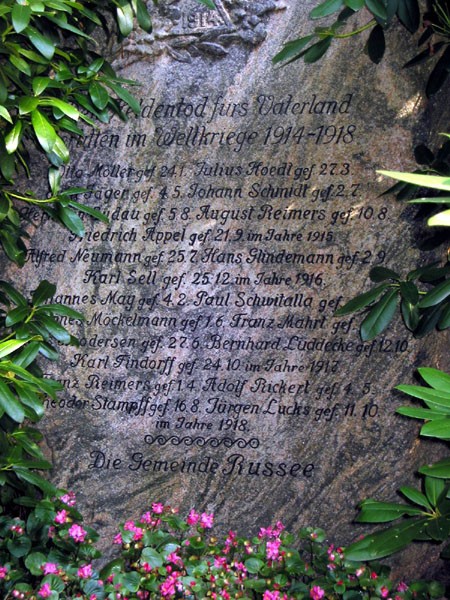 1914
Heldentod fürs Vaterland
litten im Weltkriege 1914-1918
Otto Möller gef. 24.1. Julius Hoedt gef. 27.3.
Jäger gef. 4.5. Johann Schmidt gef. 2.7.
gef. 5.8. August Reimers gef. 10.8.
Friedrich Appel gef. 21.9. im Jahre 1915.
Alfred Neumann gef. 25.7. Hans Glindemann gef. 2.9.
Karl Sell gef. 25.12. im Jahre 1916.
May gef. 4.2. Paul Schwitalla gef.
Möckelmann gef. 1.6. Franz Mahrt gef.
gef. 27.6. Bernhard Lüddecke gef. 12.10.
Karl Findorff gef. 24.10. im Jahre 1917.
Franz Reimers gef. 1.4. Adolf Rickert gef. 4.5.
Theodor Stampff gef. 16.8. Jürgen Lucks gef. 11.10.
im Jahre 1918.
Die Gemeinde Russee